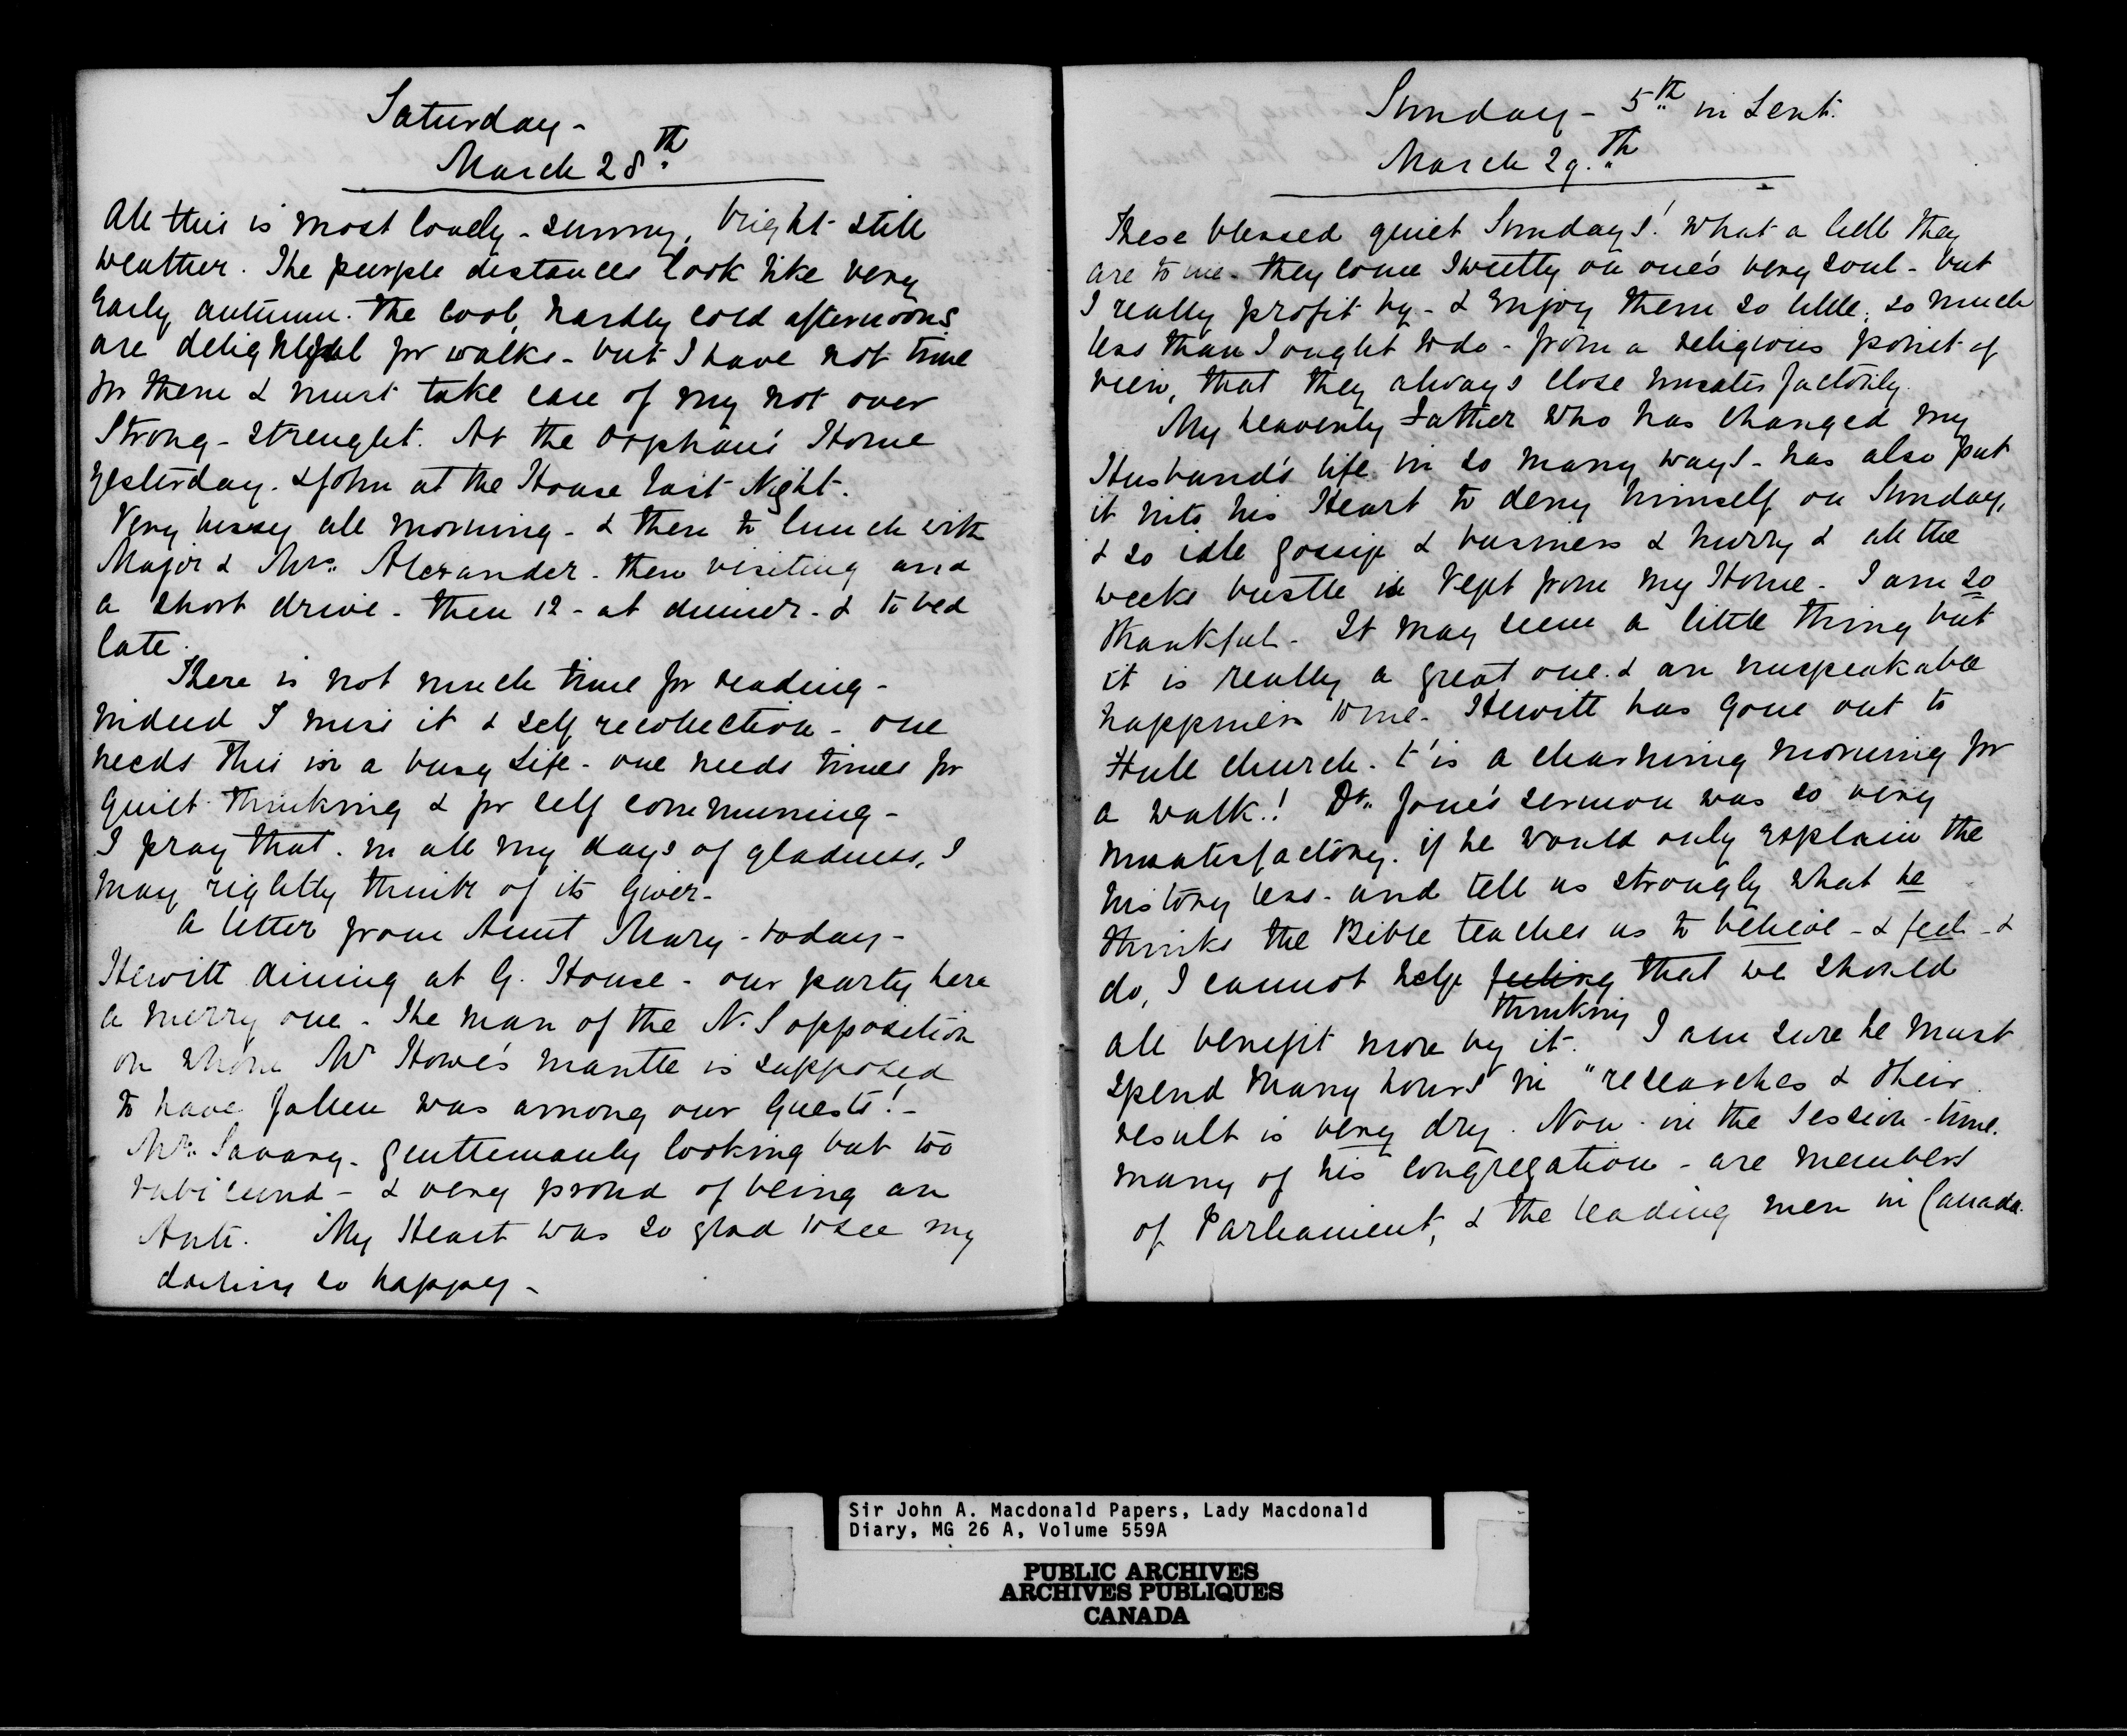 Saturday -
March 28th
All this is most lovely - sunny, bright - still
weather. The purple distances look like very
early autumn. The cool, hardly cold afternoons
are delightful for walks - but I have not time
for them & must take care of my not over
strong - strenght. At the Orphan's Home
yesterday. & John at the House last Night.
Very busy all morning - & then to lunch with
Major & Mrs. Alexander - then visiting and
a short drive - then 12 - at dinner - & to bed
late.
There is not much time for reading -
indeed I miss it & self recollection - one
needs this in a busy Life - one needs times for
quiet thinking & for self communing -
I pray that. in all my days of gladness, I
may rightly think of its Giver -
A letter from Aunt Mary - today -
Hewitt dining at G. House - our party here
a merry one - The man of the N. S opposition
on whom Mr Howe's mantle is supposed
to have fallen was among our Guests! -
Mr. Savary - gentlemanly looking but too
rubicund - & very proud of being an
Anti. My Heart was so glad to see my
darling so happy -
Sunday - 5th in Lent.
March 29.th
These blessed quiet Sundays! What a they
are to me - they come sweetly on one's very soul - but
I really profit by - & enjoy them so little, so much
less than I ought to do - from a religious point of
view, that they always close unsatisfactorily.
My heavenly Father who has changed my
Husband's life in so many ways - has also put
it into his Heart to deny himself on Sunday,
& so idle gossip & business & hurry & all the
weeks bustle is kept from my Home - I am so
thankful - It may seem a little thing but
it is really a great one. & an unspeakable
happiness to me - Hewitt has gone out to
Hull church. t'is a charming morning for
a walk.! Dr. Jone's sermon was so very
unsatisfactory. if he would only explain the
history less - and tell us strongly what he
thinks the Bible teaches us to believe - & feel - &
do, I cannot help feeling that we should
thinking
all benefit more by it. I am sure he must
spend many hours in "researches & their
result is very dry. Now - in the Session - time.
many of his congregation - are members
of Parliament, & the leading men in Canada.
Sir John A. Macdonald Papers, Lady Macdonald
Diary, MG 26 A, Volume 559A
PUBLIC ARCHIVES
ARCHIVES PUBLIQUES
CANADA